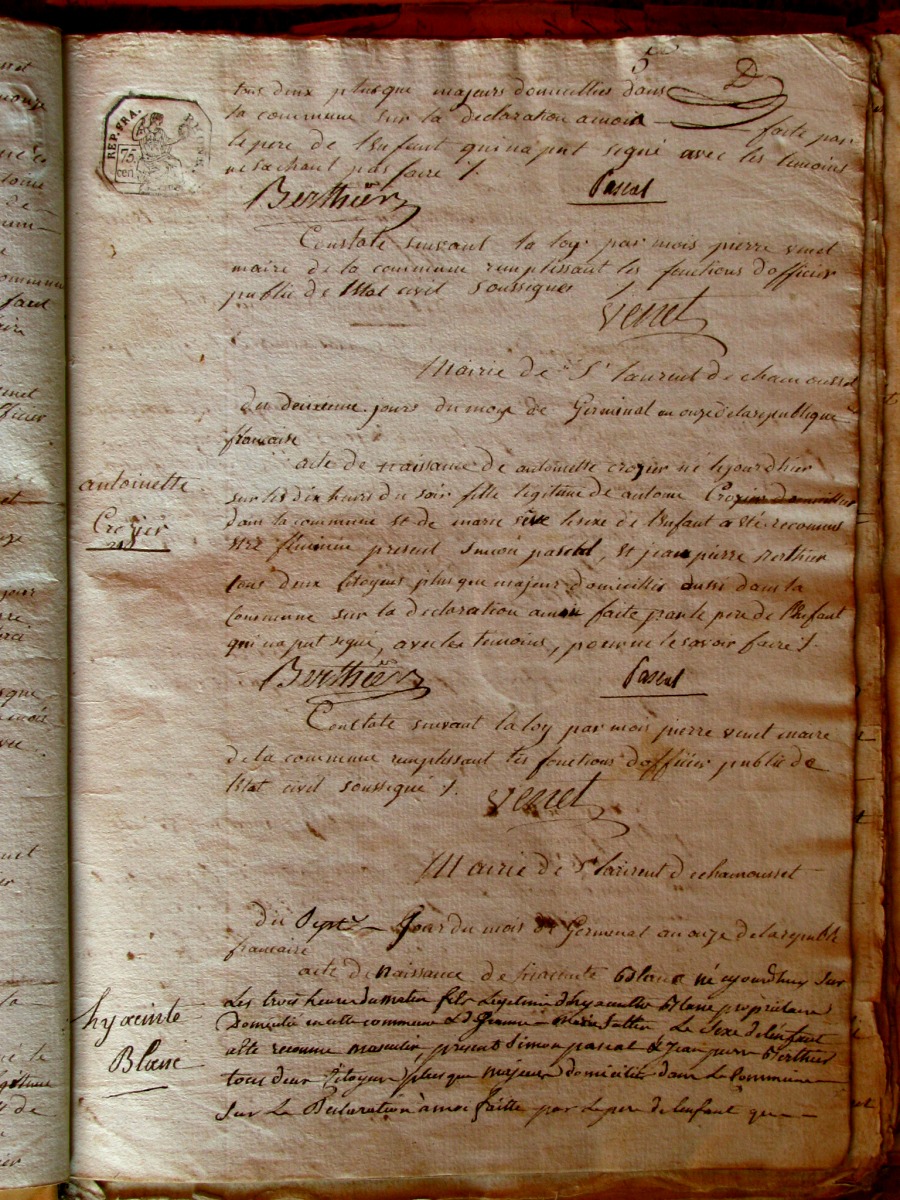 5
D
REP. FRA.
75
cen
tous deux plusque majeurs domicilliés dans
la commune sur la declaration amoi faite par
le pere de l'Enfant qui na put signé avec les temoins
ne sachant pas faire /.
Berthier Pascal
Constaté suivant la loy par mois pierre venet
maire de la commune remplissant les fonctions dofficier
public de l'Etat civil soussignés /
venet
Mairie de St laurent de chamousset
du deuxieme jours du mois de Germinal an onze de la republique
francaise
acte de naissance de antoinette crozier né lejourdhier
antoinette
Crozier
sur les dix heurs du soir fille legitime de antoine Crozier domicilliés
dans la commune et de marie le sexe de l'Enfant a été reconnus
être féminin present simon pascal, et jean pierre Berthier
tous deux citoyens plus que majeur domicilliés aussi dans la
commune sur la declaration amoi faite par le pere de l'Enfant
qui na put signé, avec les temoins, pour ne le savoir faire /.
Berthier Pascal
Constaté suivant la loy par mois pierre venet maire
de la commune remplissant les fonctions dofficier public de
l'Etat civil soussigné /.
venet
Mairie de St laurent de chamousset
du Sept Jour du mois de Germinal an onze de la republi
francaise
acte de naissance de hiacinte Blanc né cejourdhuy sur
hyacinte
Blanc
Les trois heures du matin fils Legitime d'hyacinthe Blanc propriétaire
Domicilié en cette commune & d Jeanne Marie Le Sexe de lenfant
a été reconnu masculin, present Simon pascal & Jean pierre Berthier
tous deux Citoyens plus que majeurs domiciliés dans La Commune
Sur La Déclaration à moi faitte par Le pere de lenfant qui